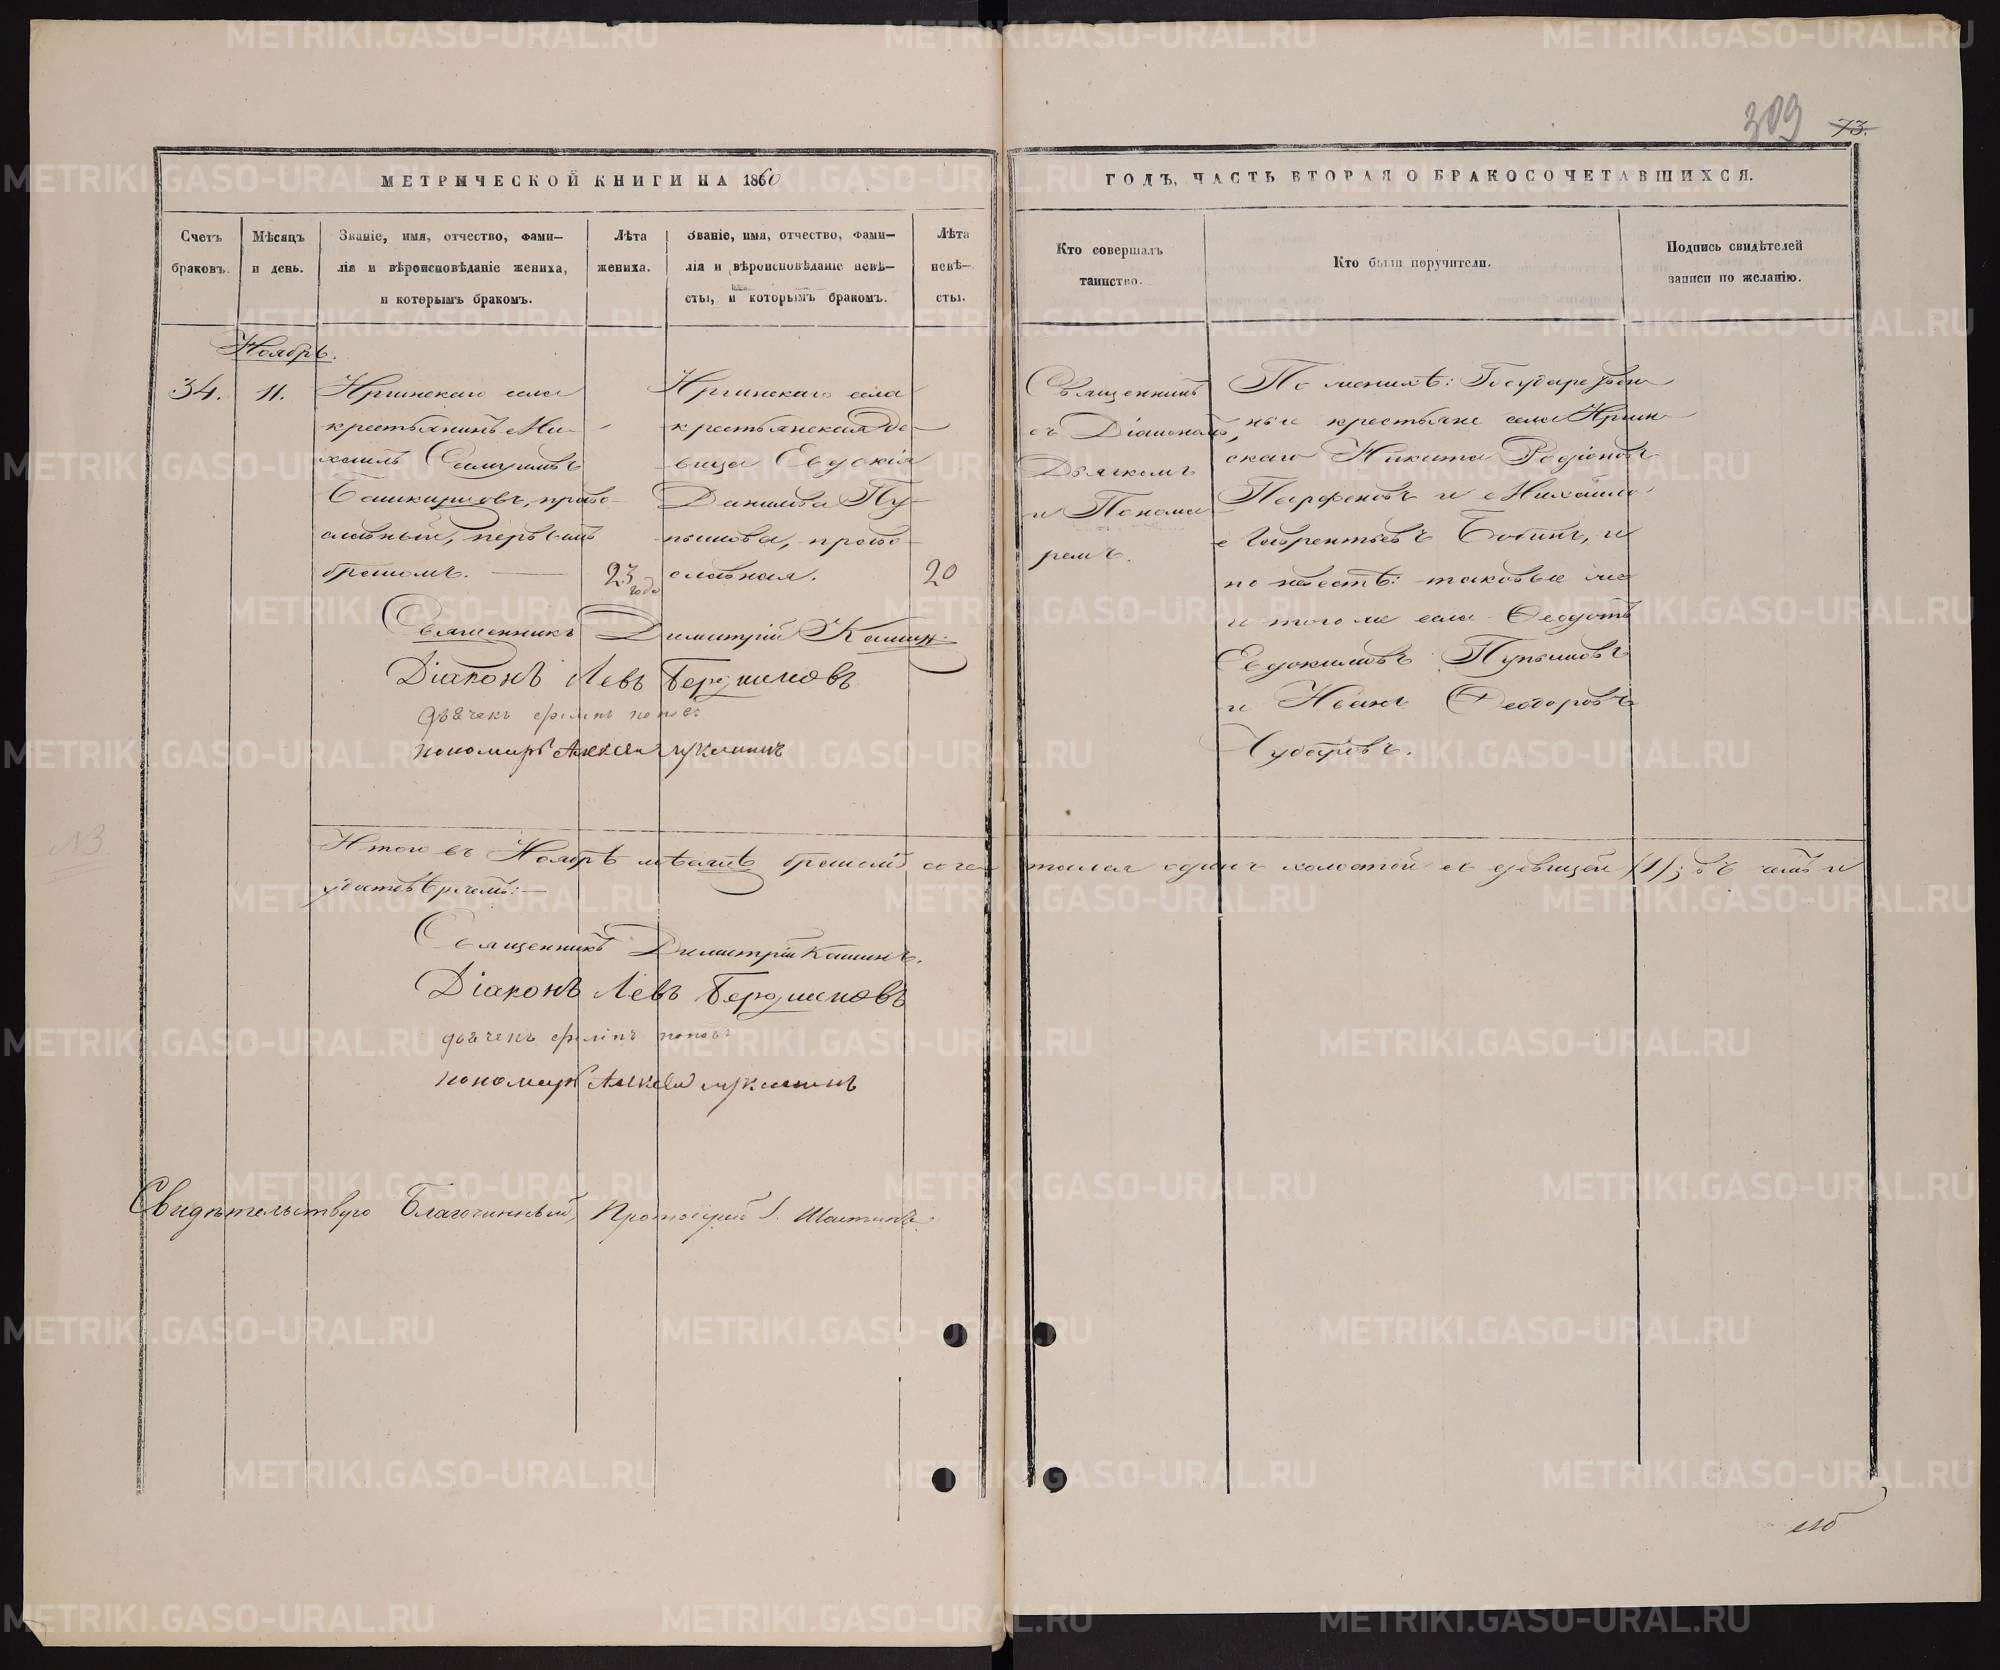 309 73.
МЕТРИЧЕСКОЙ КНИГИ НА 1860
ГОДЪ, ЧАСТЬ ВТОРАЯ О БРАКОСОЧЕТАВШИХСЯ.
Счетъ
браковъ.
Мѣсяцъ
и день.
Званіе, имя, отчество, фами-
лія и вѣроисповѣданіе жениха,
и которымъ бракомъ.
Лѣта
жениха.
Званіе, имя, отчество, фами-
лія и вѣроисповѣданіе невѣ-
сты, и которымъ бракомъ.
Лѣта
невѣ-
сты.
Кто совершалъ
таинство.
Кто были поручители.
Подпись свидѣтелей
записи по желанію.
Ноябрь.
34.
11.
Иргинскаго села
крестьянинъ Ми-
хаилъ
Башкирцовъ, право-
славный, первымъ
бракомъ.
23
года
Иргинскаго села
крестьянская дѣ-
вица Евдокія
Данилова Пу-
пышова, право-
славная.
20
Священникъ
съ Діакономъ,
Дьячкомъ
и Понома-
ремъ.
По женихѣ: Государствен-
ные крестьяне села Иргин-
скаго Никита Родіоновъ
Парфеновъ и Михаилъ
Лаврентьевъ Бобинъ, и
по невестѣ: таковые же
и того же села Ѳедотъ
Евдокимовъ Пупышовъ
и Иванъ Ѳеодоровъ
Чубаровъ.
Священникъ Димитрій Кашин.
Діаконъ Левъ
дьячекъ филипъ попов
пономарь Алексей Лукашинъ
Итого въ Ноябрѣ мѣсяцѣ бракомъ сочетался одинъ холостой съ дѣвицей (1); въ чемъ и
удостовѣряемъ:—
Священникъ Димитрій Кашинъ.
Діаконъ Левъ
дьячекъ филипъ попов
пономарь Алексей Лукашинъ
Свидѣтельствую Благочинный, Протоіерей І.
METRIKI.GASO-URAL.RU